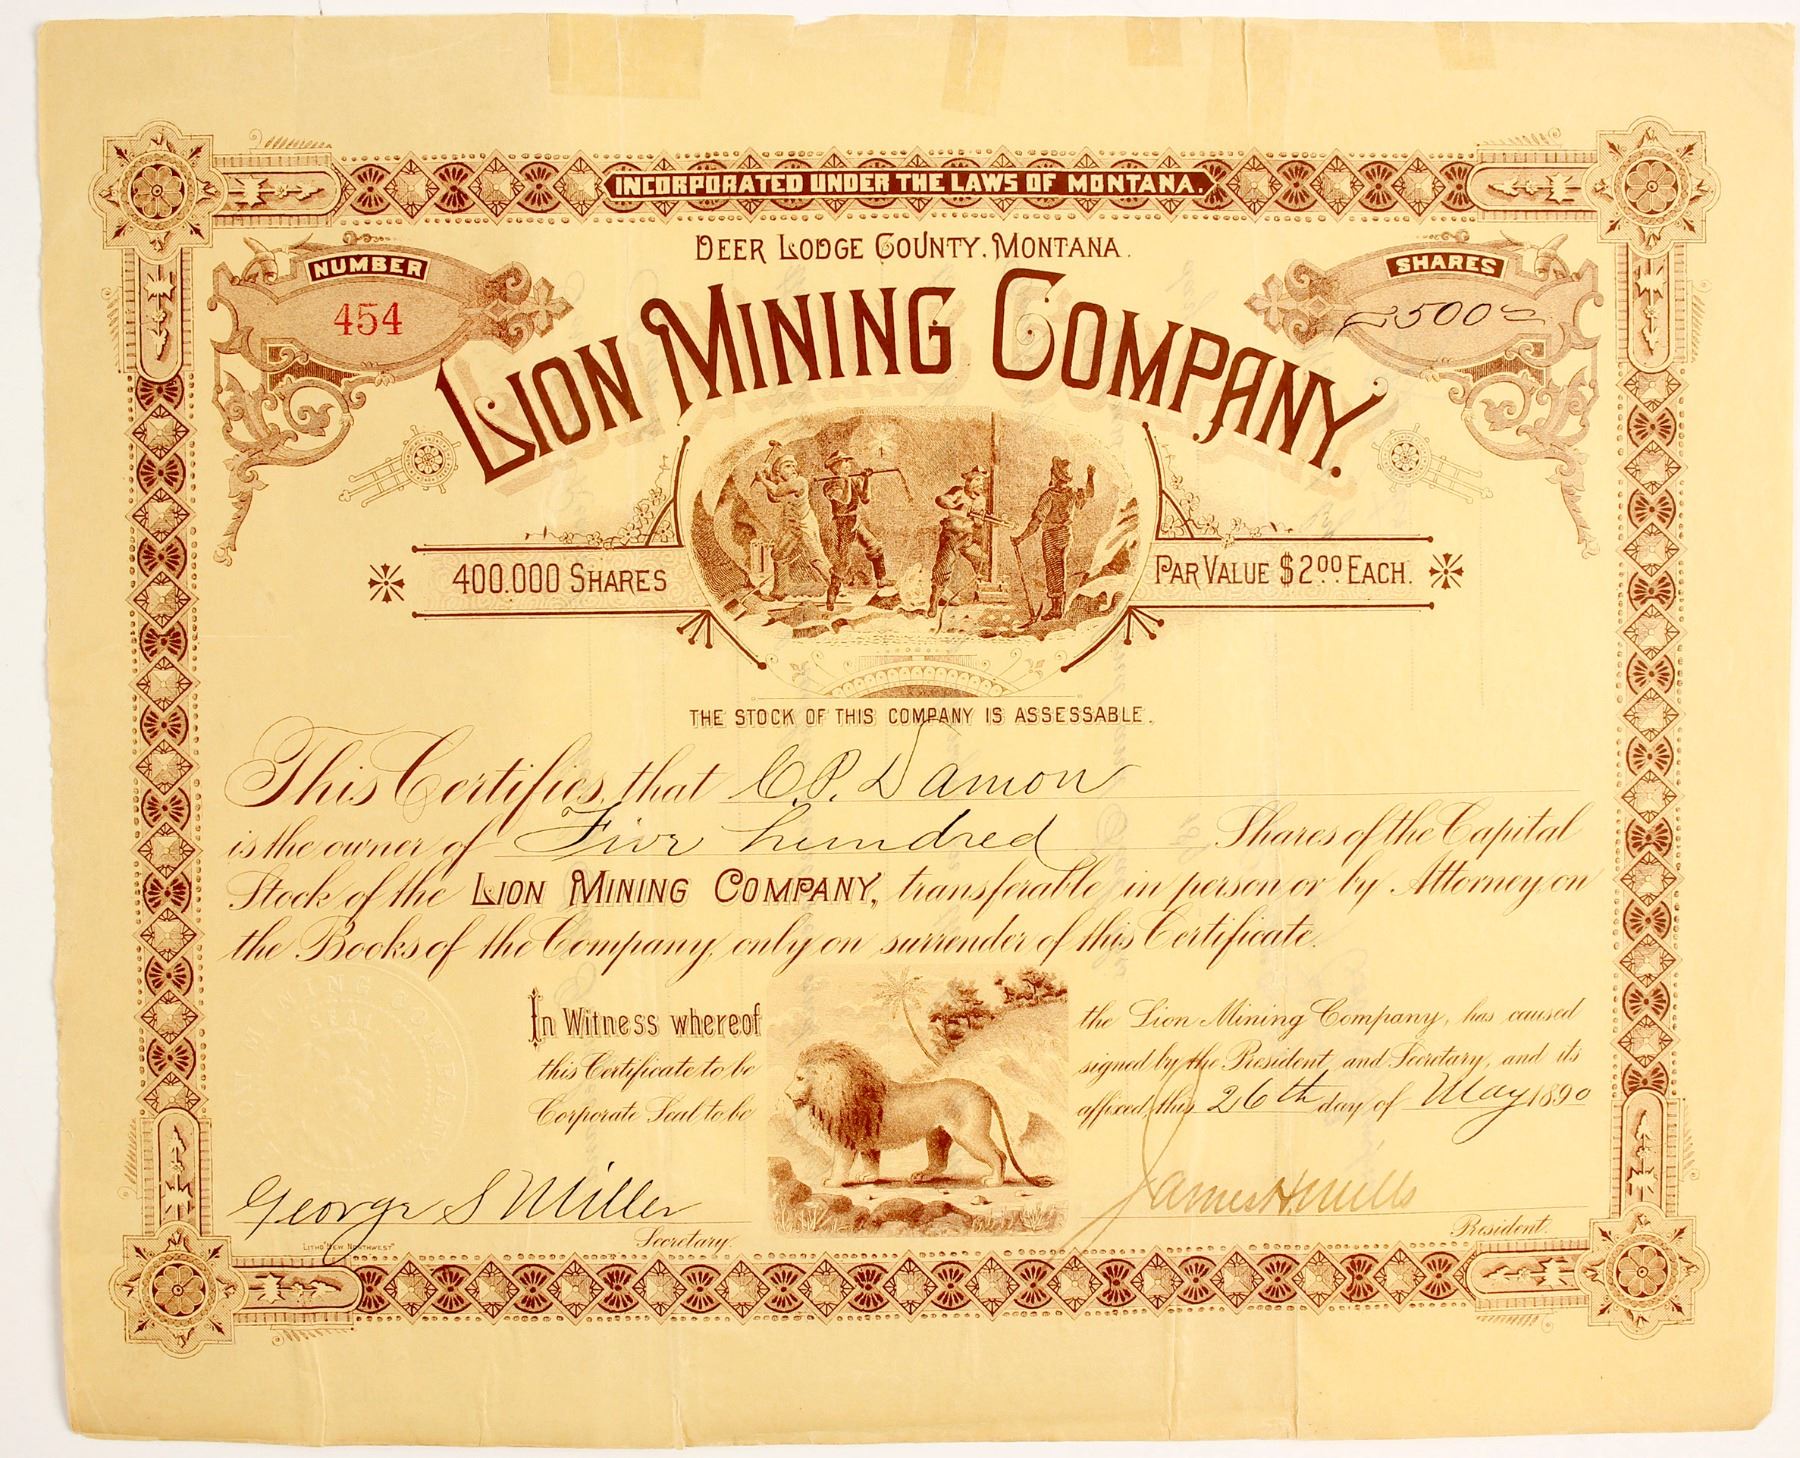 INCORPORATED UNDER THE LAWS OF MONTANA.
DEER LODGE COUNTY. MONTANA.
NUMBER
454
SHARES
500
LION MINING COMPANY.
400.000 SHARES
PAR VALUE $2.00 EACH.
THE STOCK OF THIS COMPANY IS ASSESSABLE.
This Certifies that C.P. Damon
is the owner of Five hundred Shares of the Capital
Stock of the LION MINING COMPANY, transferable in person or by Attorney on
the Books of the Company, only on surrender of this Certificate.
In Witness whereof the Lion Mining Company, has caused
this Certificate to be signed by the President, and Secretary, and its
Corporate Seal to be affixed, this 26th day of May 1890
George S Miller
Secretary.
James H. Mills
President.
LITHO "NEW NORTHWEST"